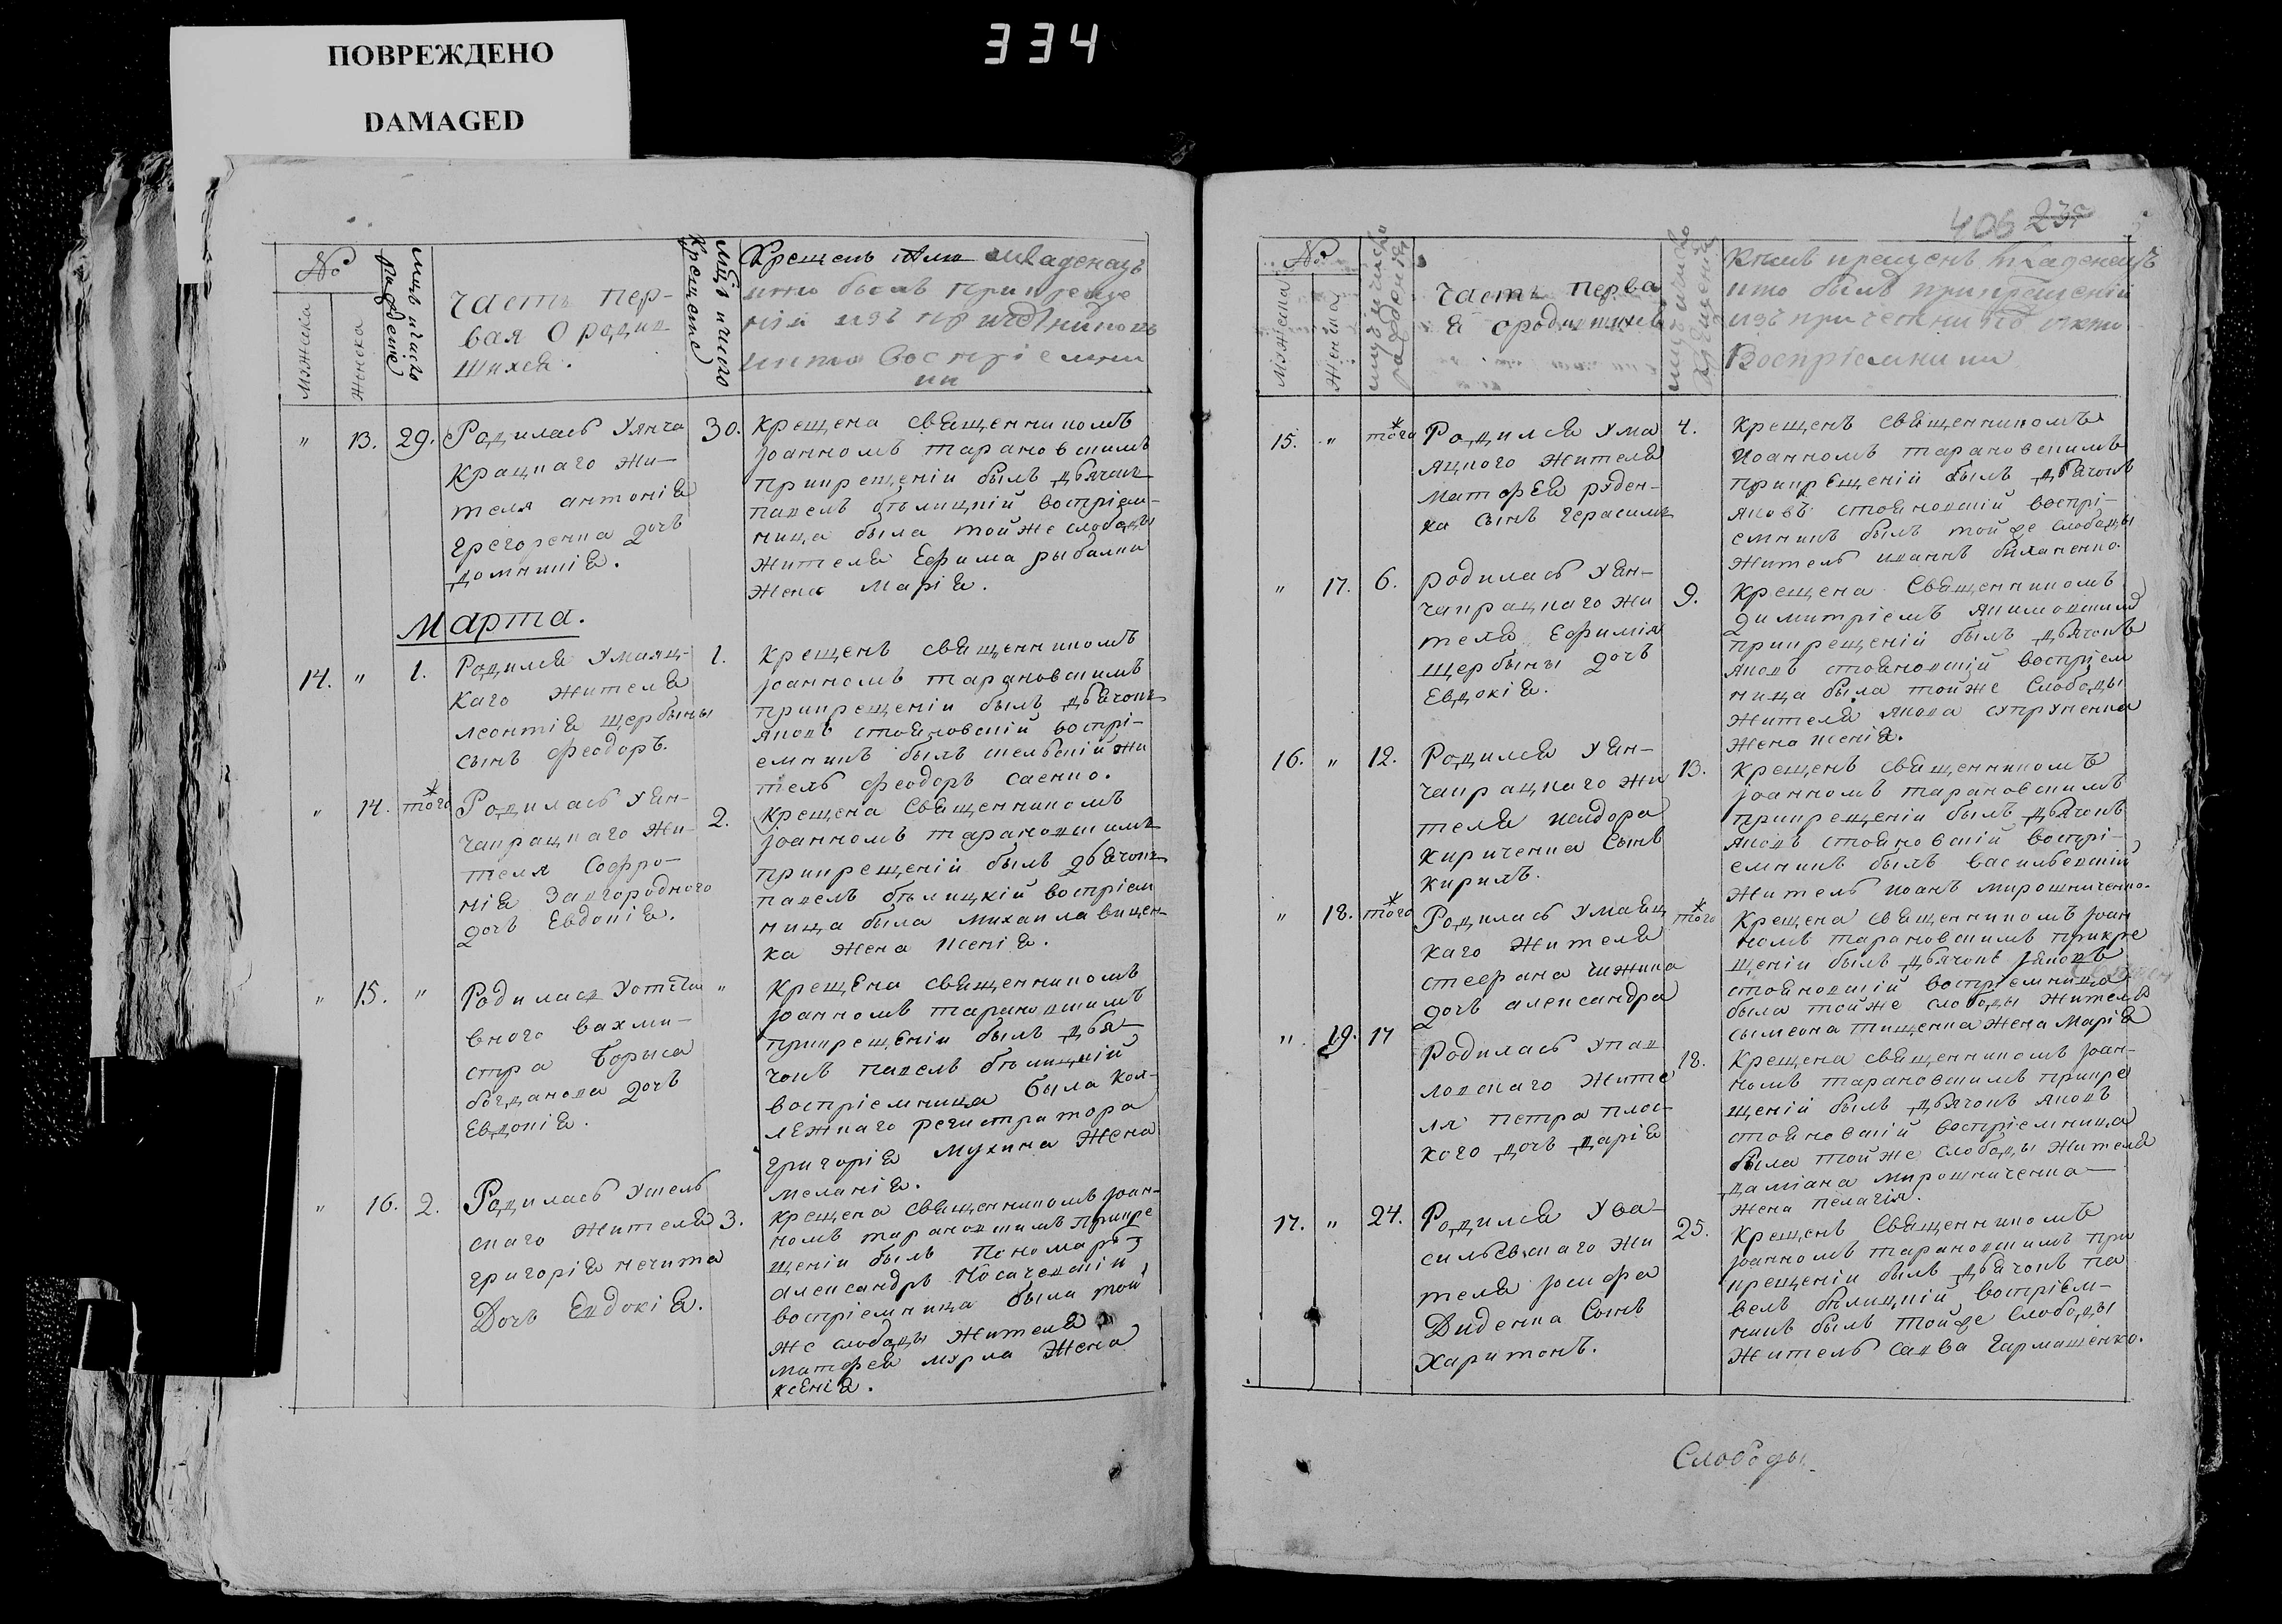 ПОВРЕЖДЕНО
DAMAGED
334
406 235
№
Мужеска
Женска
Часть пер-
вая о родив
шихся.
Крещенъ младенецъ
Воспріемни
ки
" 13. 29. Родилась Уянча
Крацкаго жи-
теля антонія
григоренка дочь
домникія.
30. Крещена священникомъ
Іоанномъ тарановскимъ
прикрещеніи былъ дьячокъ
павелъ бѣлицкій воспріем-
ница была тойже слободы
жителя Ефима рыбалки
жена Марія.
Марта.
14. " 1. Родился Умаяц-
каго жителя
леонтія щербины
сынъ феодоръ.
1. Крещенъ священникомъ
Іоанномъ тарановскимъ
прикрещеніи былъ дьячокъ
яковъ стояновскій воспрі-
емникъ былъ шельскій жи
тель феодоръ саенко.
" 14. того Родилась Уян-
чакрацкаго жи-
теля Софро-
нія Завгороднего
дочь Евдокія.
2. Крещена Священникомъ
Іоанномъ тарановскимъ
прикрещеній былъ дьячокъ
павелъ бѣлицкій воспріем
ница была михаила вицен-
ка жена ксенія.
" 15. " Родилася
вного вахми-
стра Бориса
богданова дочь
Евдокія.
" Крещена священникомъ
Іоанномъ тарановскимъ
прикрещеніи былъ дья-
чокъ павелъ бѣлицкій
воспріемница была кол-
лежкаго регистратора
григорія мухина жена
меланія.
" 16. 2. Родилась Ушель
скаго жителя
григорія нечита
Дочь Евдокія.
3. Крещена священникомъ Іоан-
номъ тарановскимъ прикре
щеніи былъ Пономарь
александръ Носачевскій
воспріемница была той
же слободы жителя
матфея мурла жена
ксенія.
№
Мужеска
Женска
Часть перва
я ородившихся
Кѣмъ крещенъ младенецъ
кто былъ прикрещеніи
изъ причетниковъ икто
Воспріемники
15. " того Родился Ума
яцкого жителя
матфея руден-
ка сынъ герасимъ
4. Крещенъ священникомъ
Иоанномъ тарановскимъ
прикрещеніи былъ дьячокъ
яковъ стояновскій воспрі-
емникъ былъ тойже слободы
житель иванъ
" 17. 6. родилась Уян-
чакрацкаго жи
теля Ефимія
щербины дочь
Евдокія.
9. Крещена Священникомъ
димитріемъ якимовскимъ
прикрещеній былъ дьячокъ
яковъ стояновскій воспріем
ница была тойже Слободы
жителя якова супруненка
жена ксенія.
16. " 12. Родился Уян-
чакрацкаго жи
теля
кириченка Сынъ
кирилъ.
13. Крещенъ священникомъ
Іоанномъ тарановскимъ
прикрещеніи былъ дьячокъ
яковъ стояновскій воспрі-
емникъ былъ васильевскій
житель иоанъ мирошниченко.
" 18. того Родилась Умаяц
каго жителя
стефана чижика
дочь александра
того Крещена священникомъ Іоан
номъ тарановскимъ прикре
щеніи былъ дьячокъ яковъ
стояновскій воспріемница
была тойже слободы жителя
сымеона тищенка жена Марія
" 19. 17 Родилась Упав
ловскаго жите
ля петра плос-
кого дочь дарія
18. Крещена священникомъ Іоан-
номъ тарановскимъ прикре
щеній былъ дьячокъ яковъ
стояновскій воспріемница
была тойже слободы жителя
даміана мирошниченка
жена пелагія.
17. " 24. Родился Ува-
сильевскаго жи
теля Іосифа
Диденка Сынъ
Харитонъ.
25. Крещенъ священникомъ
Іоанномъ тарановскимъ при
крещеніи былъ дьячокъ па
велъ бѣлицкій воспріем-
никъ былъ тойже Слободы
житель савва гармашенко.
Слободы